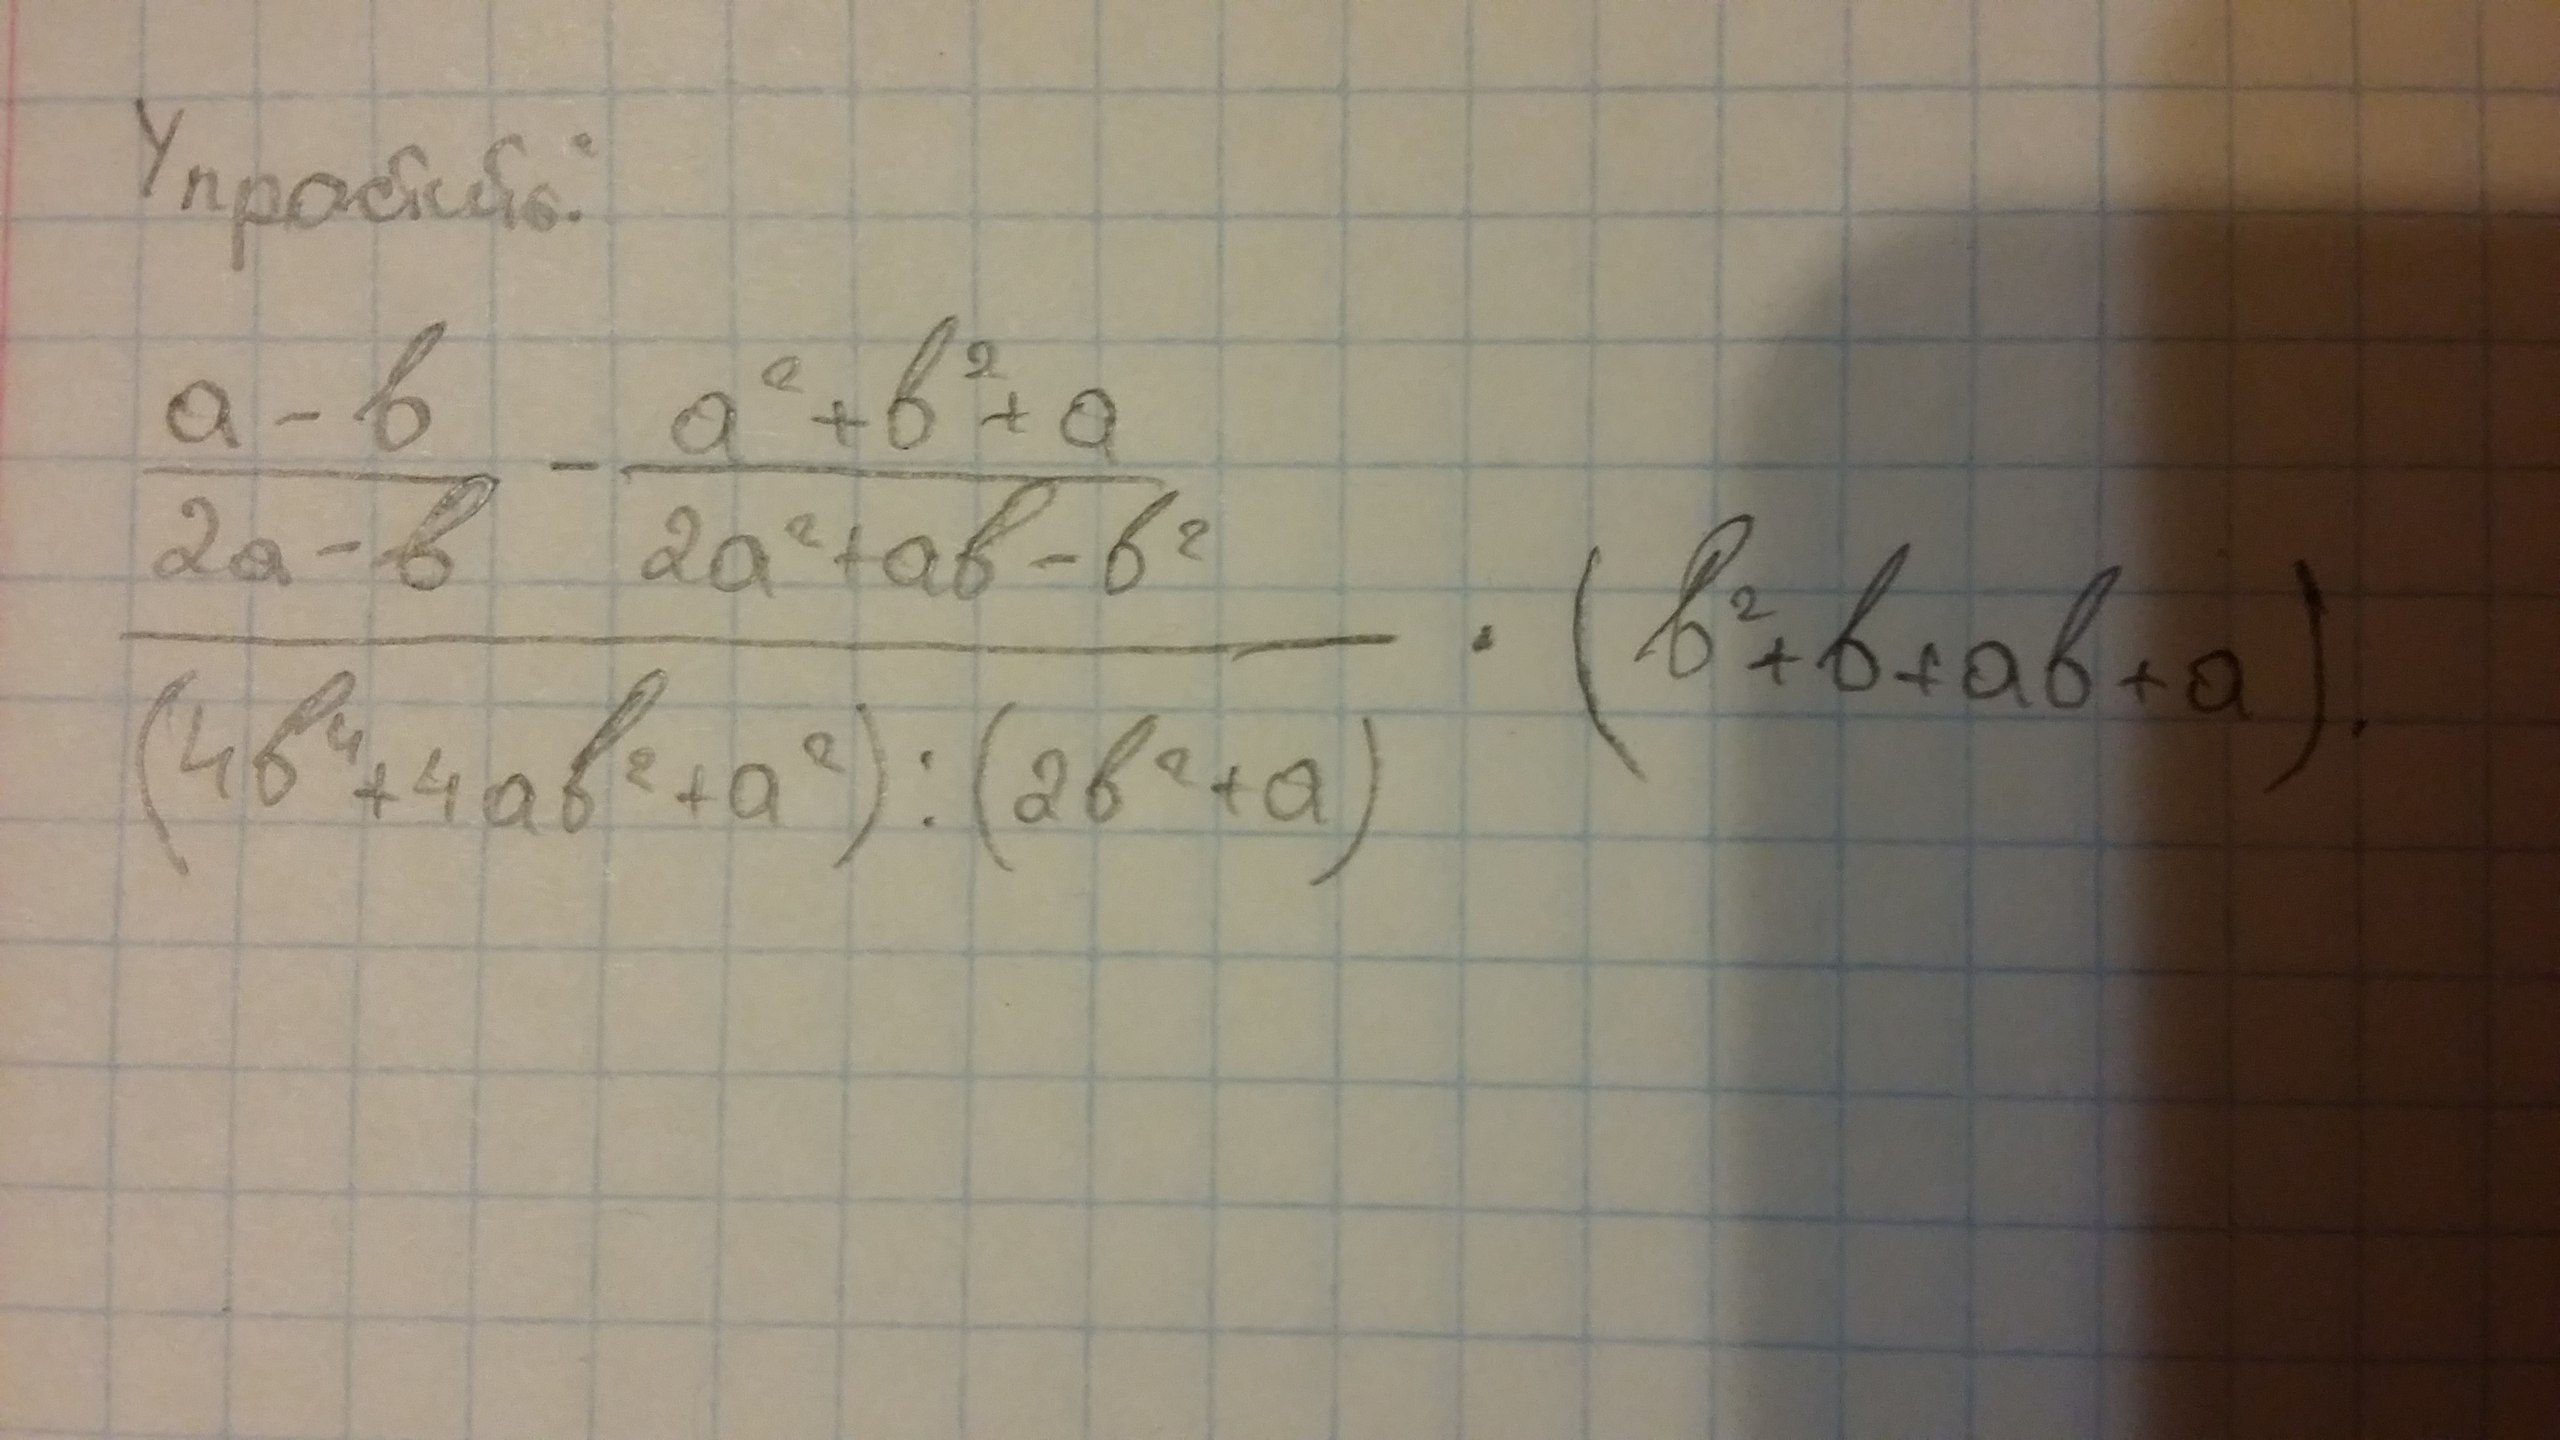 Упростить:
a - b a² + b² + a
2a - b - 2a² + ab - b²
(4b⁴ + 4ab² + a²) : (2b² + a) · (b² + b + ab + a).